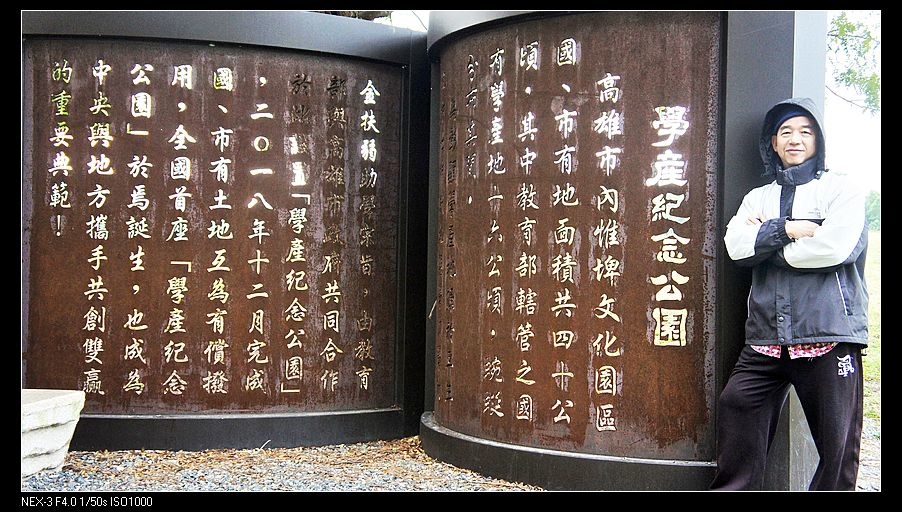 學產紀念公園
高雄市內惟埤文化園區
國、市有地面積共四十公
頃，其中教育部轄管之國
有學產地十六公頃，琬琰
金扶弱助學宗旨，由教育
部與高雄市政府共同合作
於此設置「學產紀念公園」
，二〇一八年十二月完成
國、市有土地互為有償撥
用，全國首座「學產紀念
公園」於焉誕生，也成為
中央與地方攜手共創雙贏
的重要典範！
NEX-3 F4.0 1/50s ISO1000